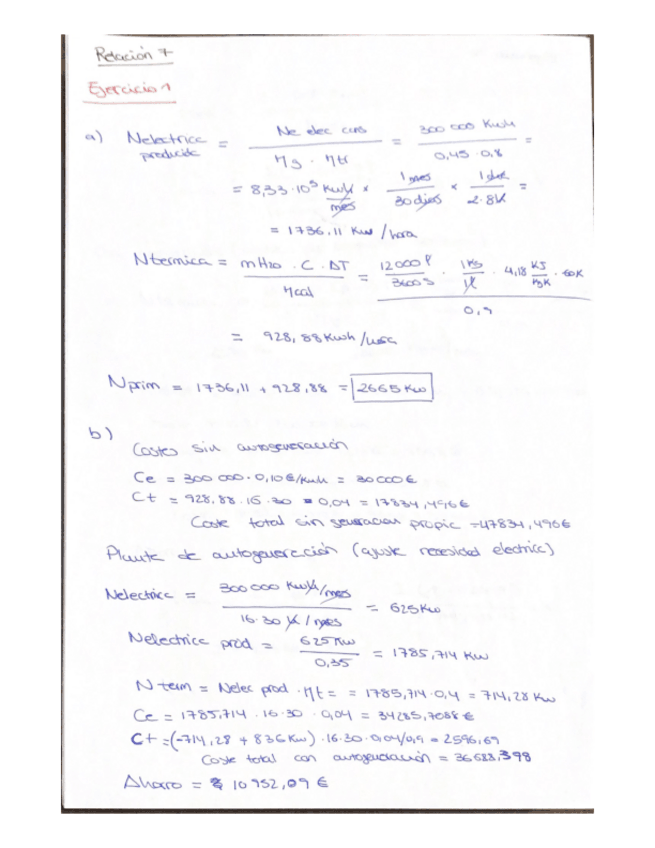 Relación 7
Ejercicio 1
a) Nelectrica producida = Ne elec cons / ηg · ηtr = 300 000 Kwh / 0,45 · 0,8 =
= 8,33 · 10⁵ Kwh/mes × 1 mes / 30 dias × 1 dia / 2·8h =
= 1736,11 Kw /hora
Ntermica = mH20 · C · ΔT / ηcal = 12000 l / 3600 s · 1 Kg / 1l · 4,18 KJ / KgK · 60K / 0,9
= 928,88 Kwh /hora
Nprim = 1736,11 + 928,88 = 2665 Kw
b)
Costes sin autogeneración
Ce = 300 000 · 0,10 €/Kwh = 30000 €
Ct = 928,88 · 16 · 30 · 0,04 = 17834,496 €
Coste total sin generacion propia = 47834,496 €
Planta de autogeneración (ajuste necesidad electrica)
Nelectrica = 300 000 Kwh/mes / 16·30 h/mes = 625 Kw
Nelectrica prod = 625 Kw / 0,35 = 1785,714 Kw
N term = Nelec prod · ηt = = 1785,714 · 0,4 = 714,28 Kw
Ce = 1785,714 · 16 · 30 · 0,04 = 34285,7088 €
Ct = (-714,28 + 836 Kw) · 16 · 30 · 0,04/0,9 = 2596,69
Coste total con autogeneración = 36683,398
Ahorro = 10952,09 €